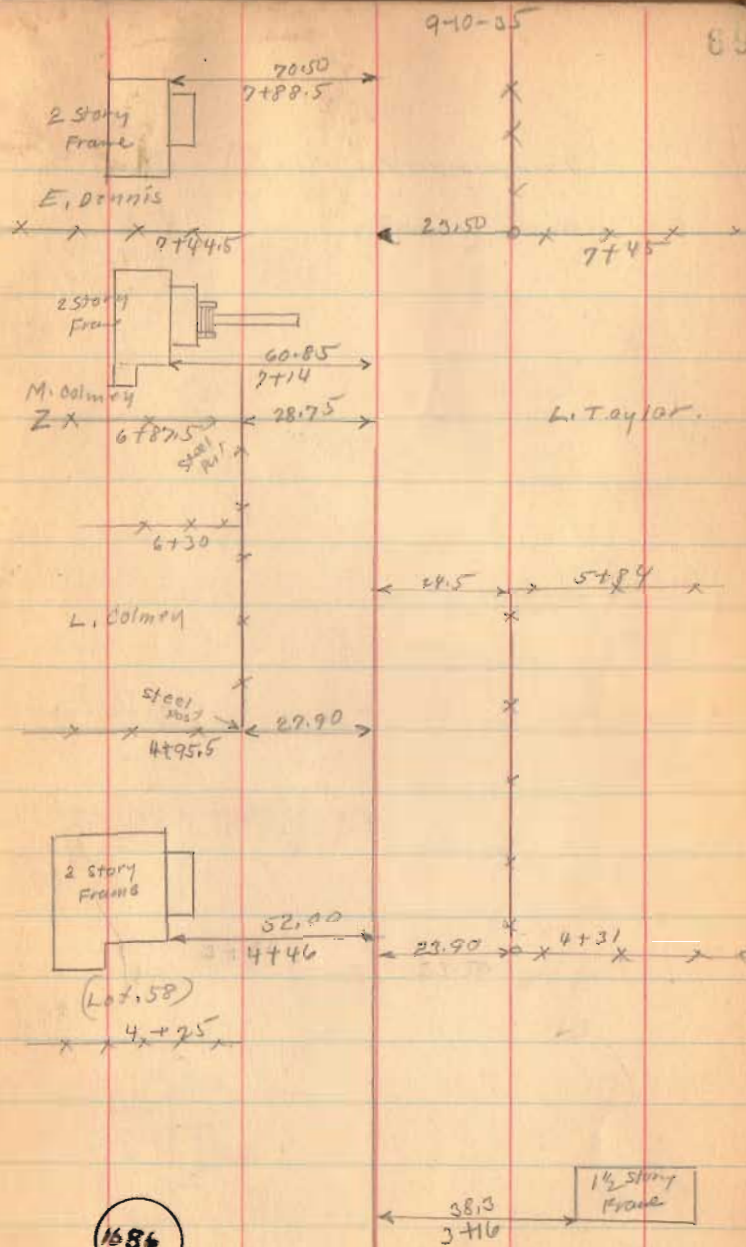 9-10-35
69
70.50
7+88.5
2 Story
Frame
E. Dennis
7+44.5
23.50
7+45
2 Story
Fram
60.85
7+14
M. Colmey
Z
28.75
L. Taylor.
6+87.5
steel
6+30
24.5
5+84
L. Colmey
steel
post
27.90
4+95.5
2 Story
Frame
52.00
4+46
23.90
4+31
(Lot, 58)
4+25
1½ Story
Frame
38.3
3+16
1686